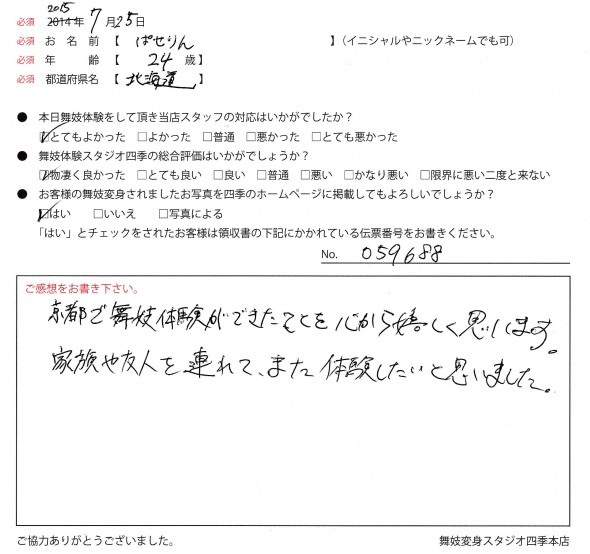 2015
必須 2014年 7月25日
必須 お名前【 ぱせりん 】(イニシャルやニックネームでも可)
必須 年齢【 24歳】
必須 都道府県名【 北海道 】
● 本日舞妓体験をして頂き当店スタッフの対応はいかがでしたか?
☑とてもよかった □よかった □普通 □悪かった □とても悪かった
● 舞妓体験スタジオ四季の総合評価はいかがでしょうか?
☑物凄く良かった □とても良い □良い □普通 □悪い □かなり悪い □限界に悪い二度と来ない
● お客様の舞妓変身されましたお写真を四季のホームページに掲載してもよろしいでしょうか?
☑はい □いいえ □写真による
「はい」とチェックをされたお客様は領収書の下記にかかれている伝票番号をお書きください。
No. 059688
ご感想をお書き下さい。
京都で舞妓体験ができたことを心から嬉しく思います。
家族や友人を連れて、また体験したいと思いました。
ご協力ありがとうございました。 舞妓変身スタジオ四季本店